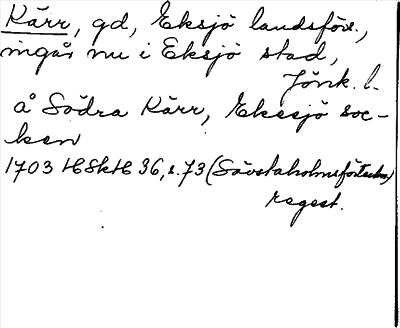 Kärr, gd, Eksjö landsförs.,
ingår nu i Eksjö stad,
Jönk. l.
å Södra Kärr, Ekesjö soc-
ken
1703 HSkH 36, s. 73 (Sävstaholmsförteckn)
regest.